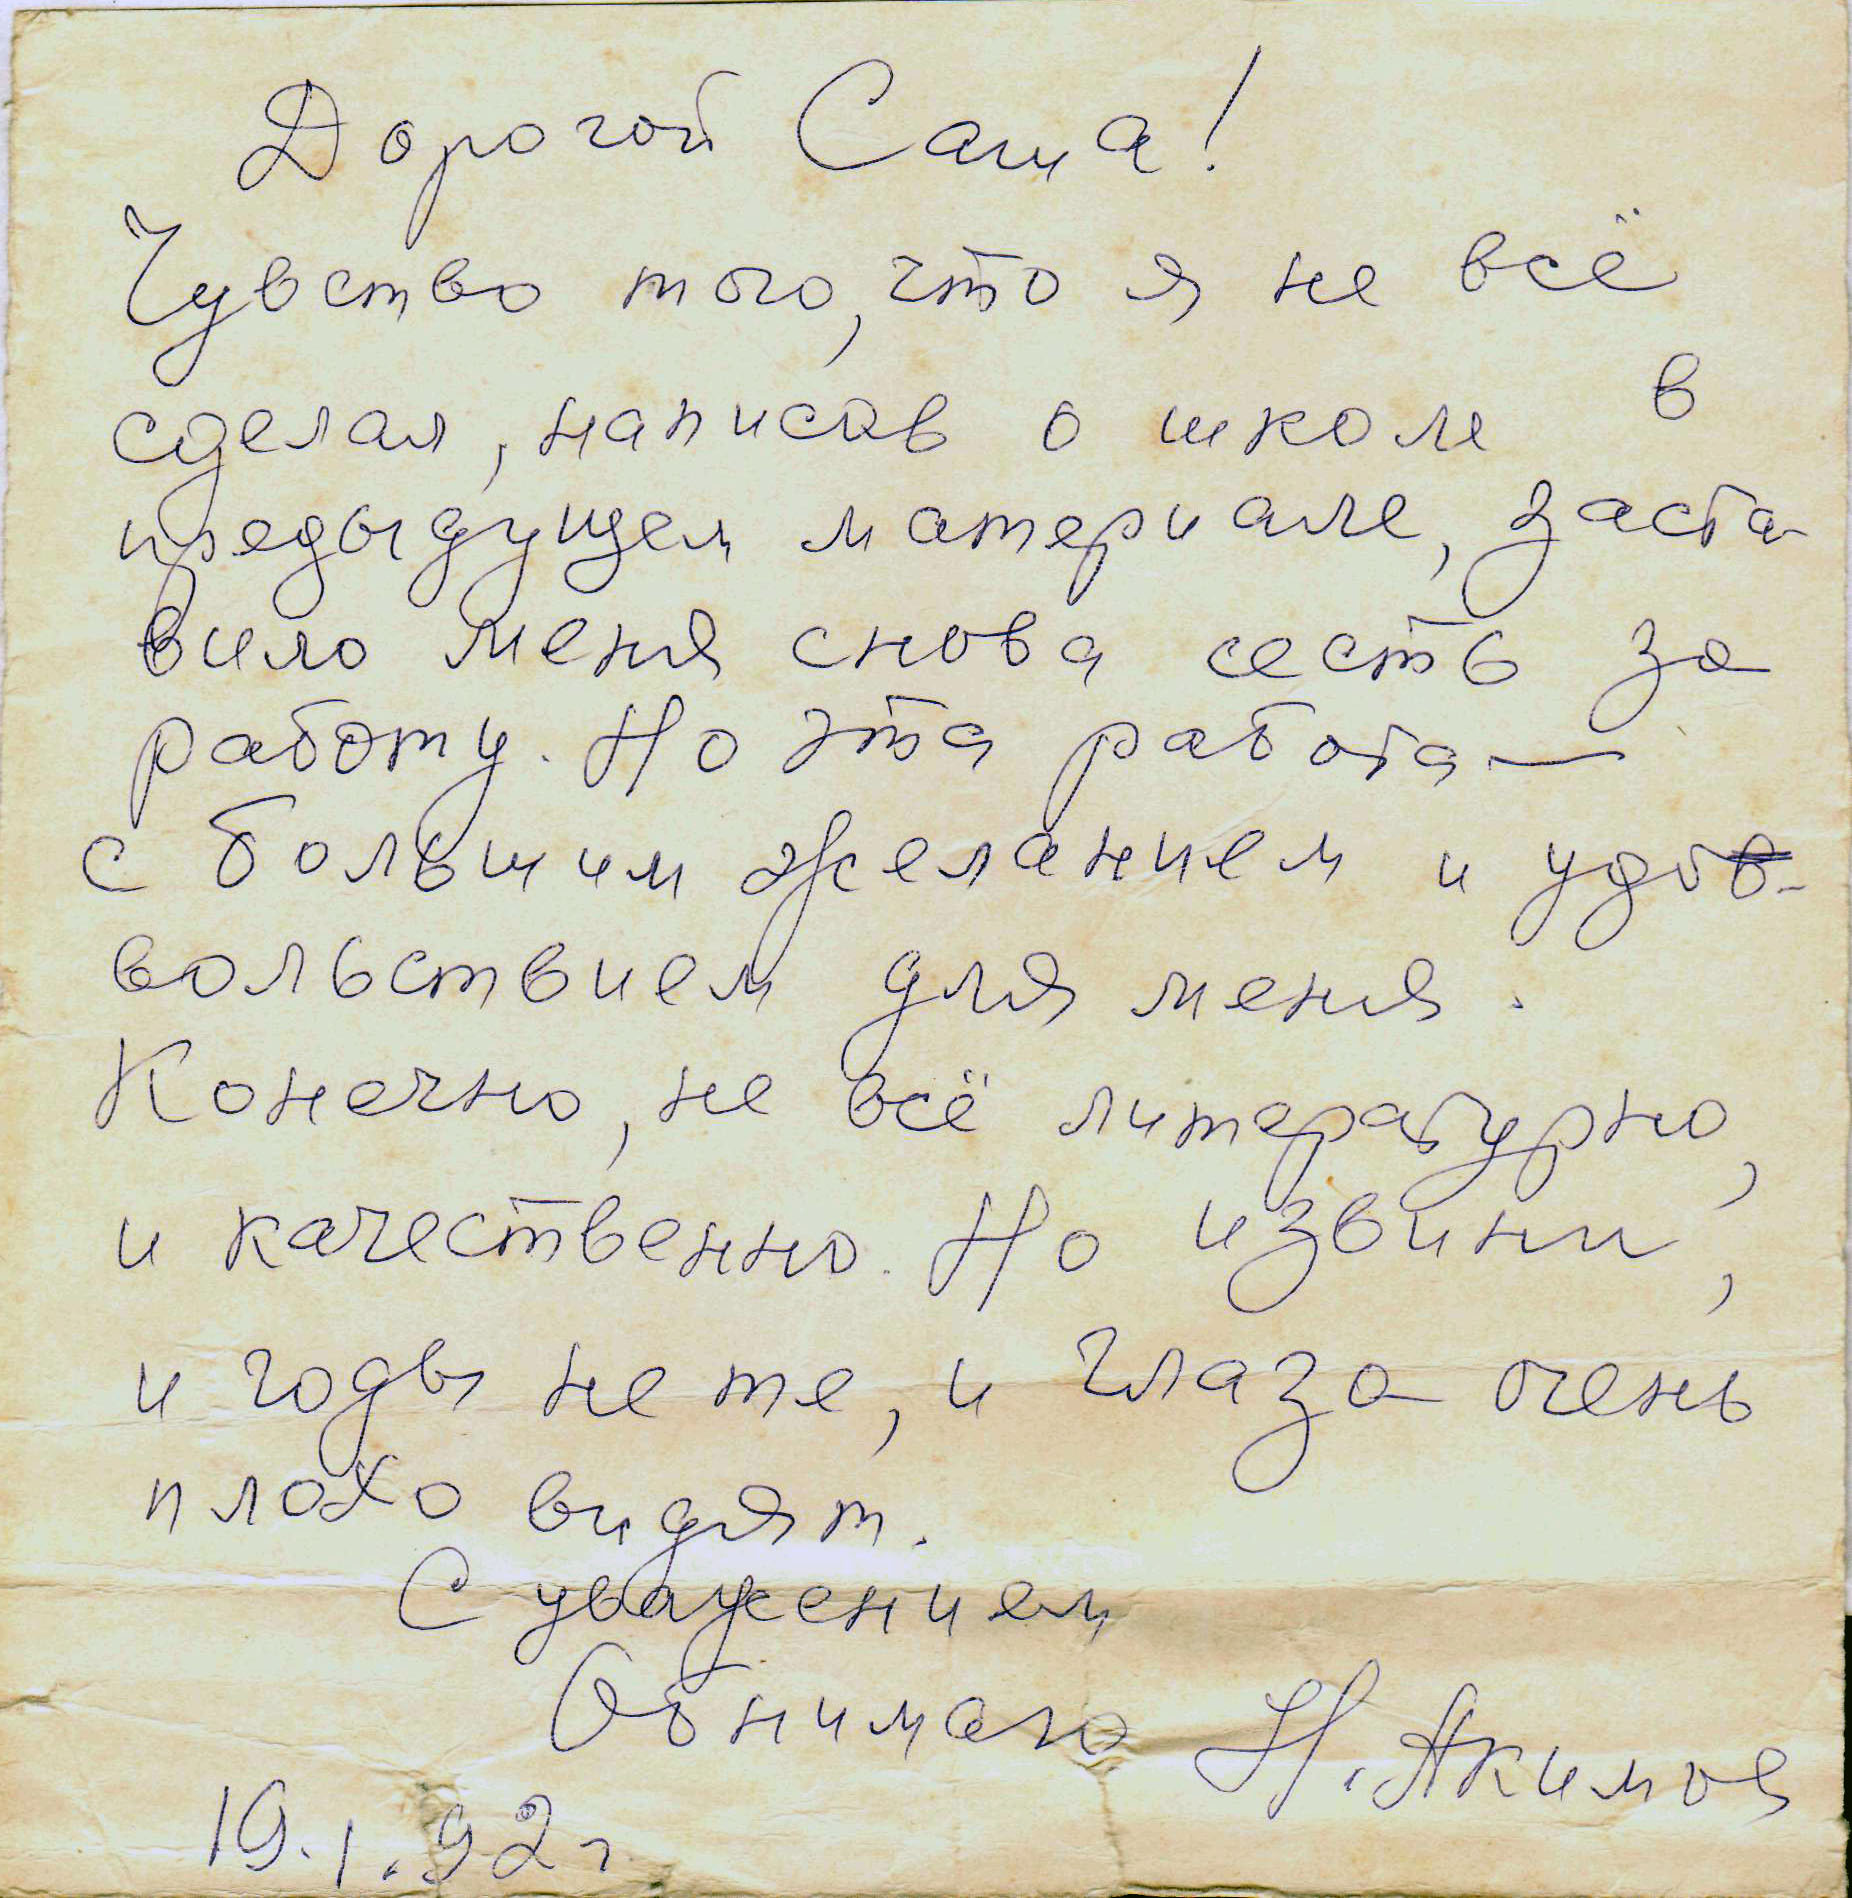 Дорогой Саша!
Чувство того, что я не всё
сделал, написав о школе в
предыдущем материале, заста-
вило меня снова сесть за
работу. Но эта работа —
с большим желанием и удо-
вольствием для меня.
Конечно, не всё литературно,
и качественно. Но извини,
и годы не те, и глаза очень
плохо видят.
С уважением
Обнимаю Н. Акимов
19.1.92 г